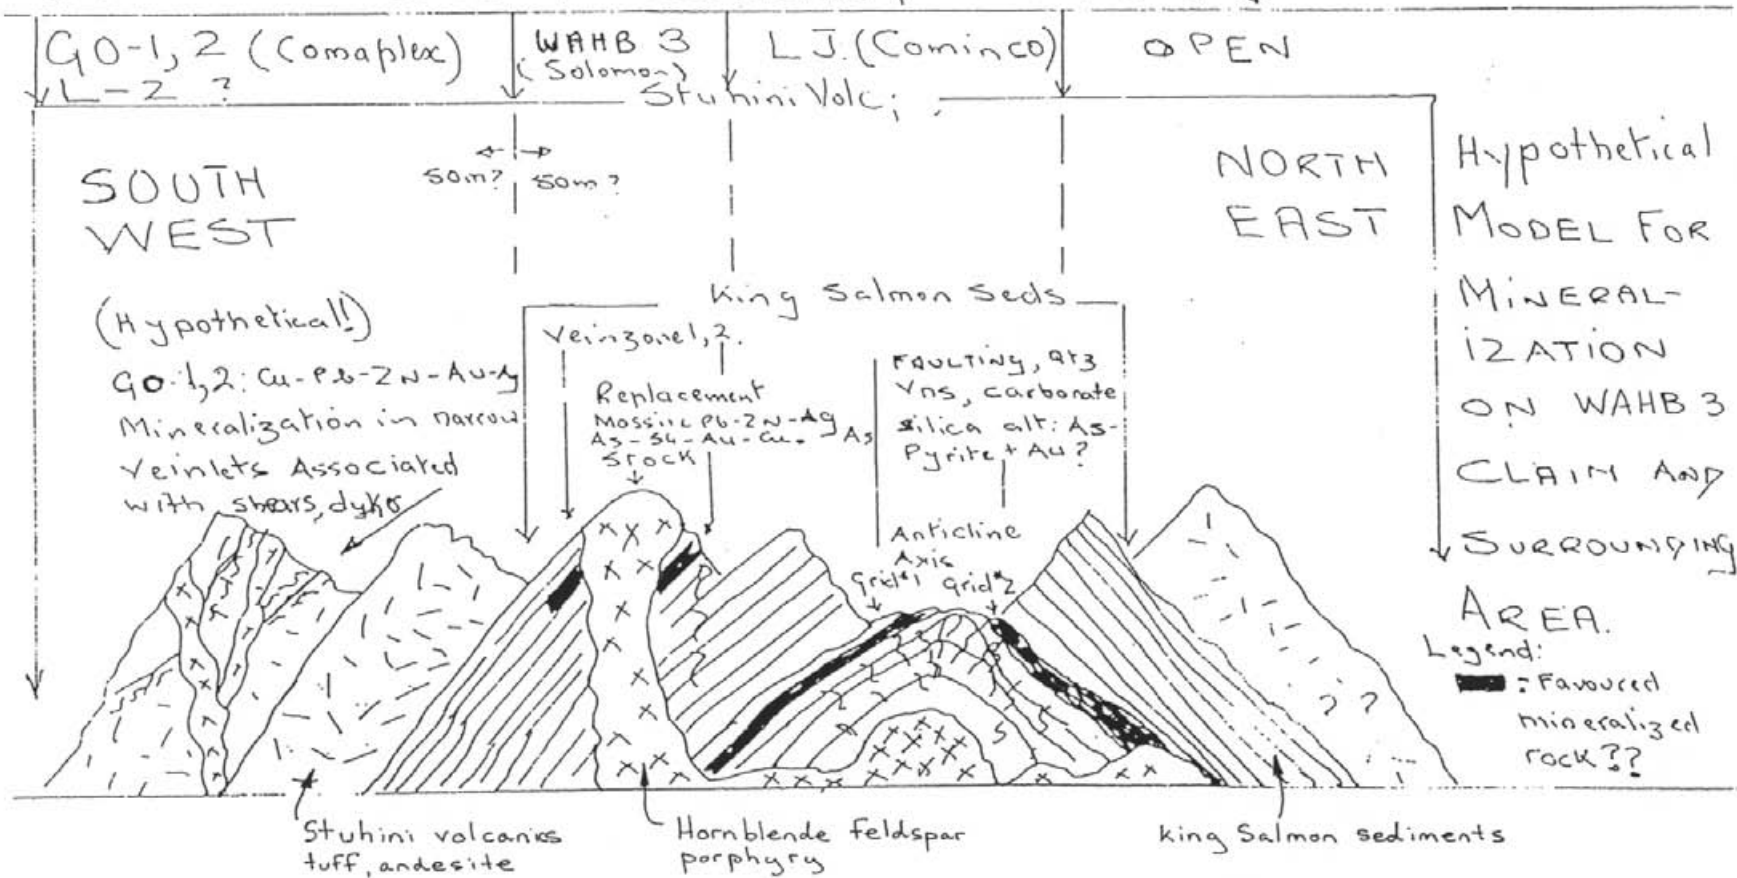 GO-1, 2 (Comaplex)
L-2 ?
WAHB 3
(Solomon)
L J. (Cominco)
OPEN
Stuhini Volc;
SOUTH
WEST
50m? 50m?
NORTH
EAST
Hypothetical
MODEL FOR
MINERAL-
IZATION
ON WAHB 3
CLAIM AND
SURROUNDING
AREA.
(Hypothetical!)
GO-1,2: Cu-Pb-ZN-Au-Ag
Mineralization in narrow
Veinlets Associated
with shears, dyke
King Salmon Seds
Veinzone1, 2.
Replacement
Massive Pb-ZN-Ag
As-Sb-Au-Cu.
Stock
As
FAULTING, Qtz
Vns, carbonate
silica alt: As-
Pyrite + Au?
Anticline
Axis
Grid#1 Grid#2
? ?
Legend:
: Favoured
mineralized
rock??
Stuhini volcanics
tuff, andesite
Hornblende feldspar
porphyry
King Salmon sediments